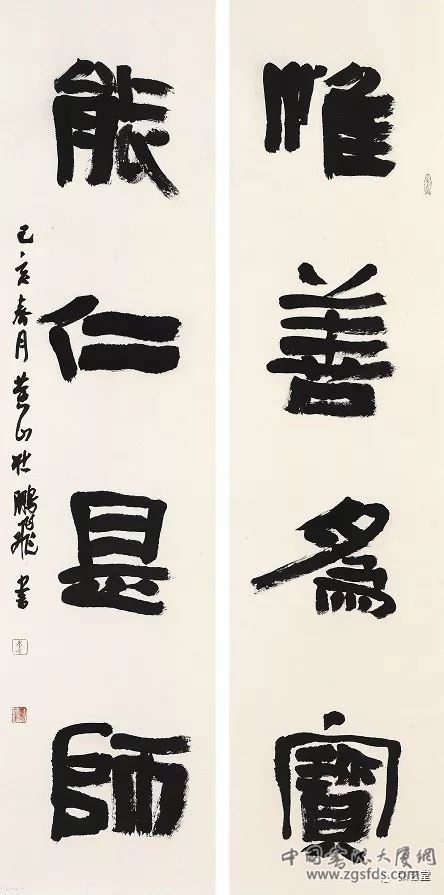 惟善為寳
能仁是師
己亥春月黄山狄鵬飛書
中国书法大厦网
www.zgsfds.com